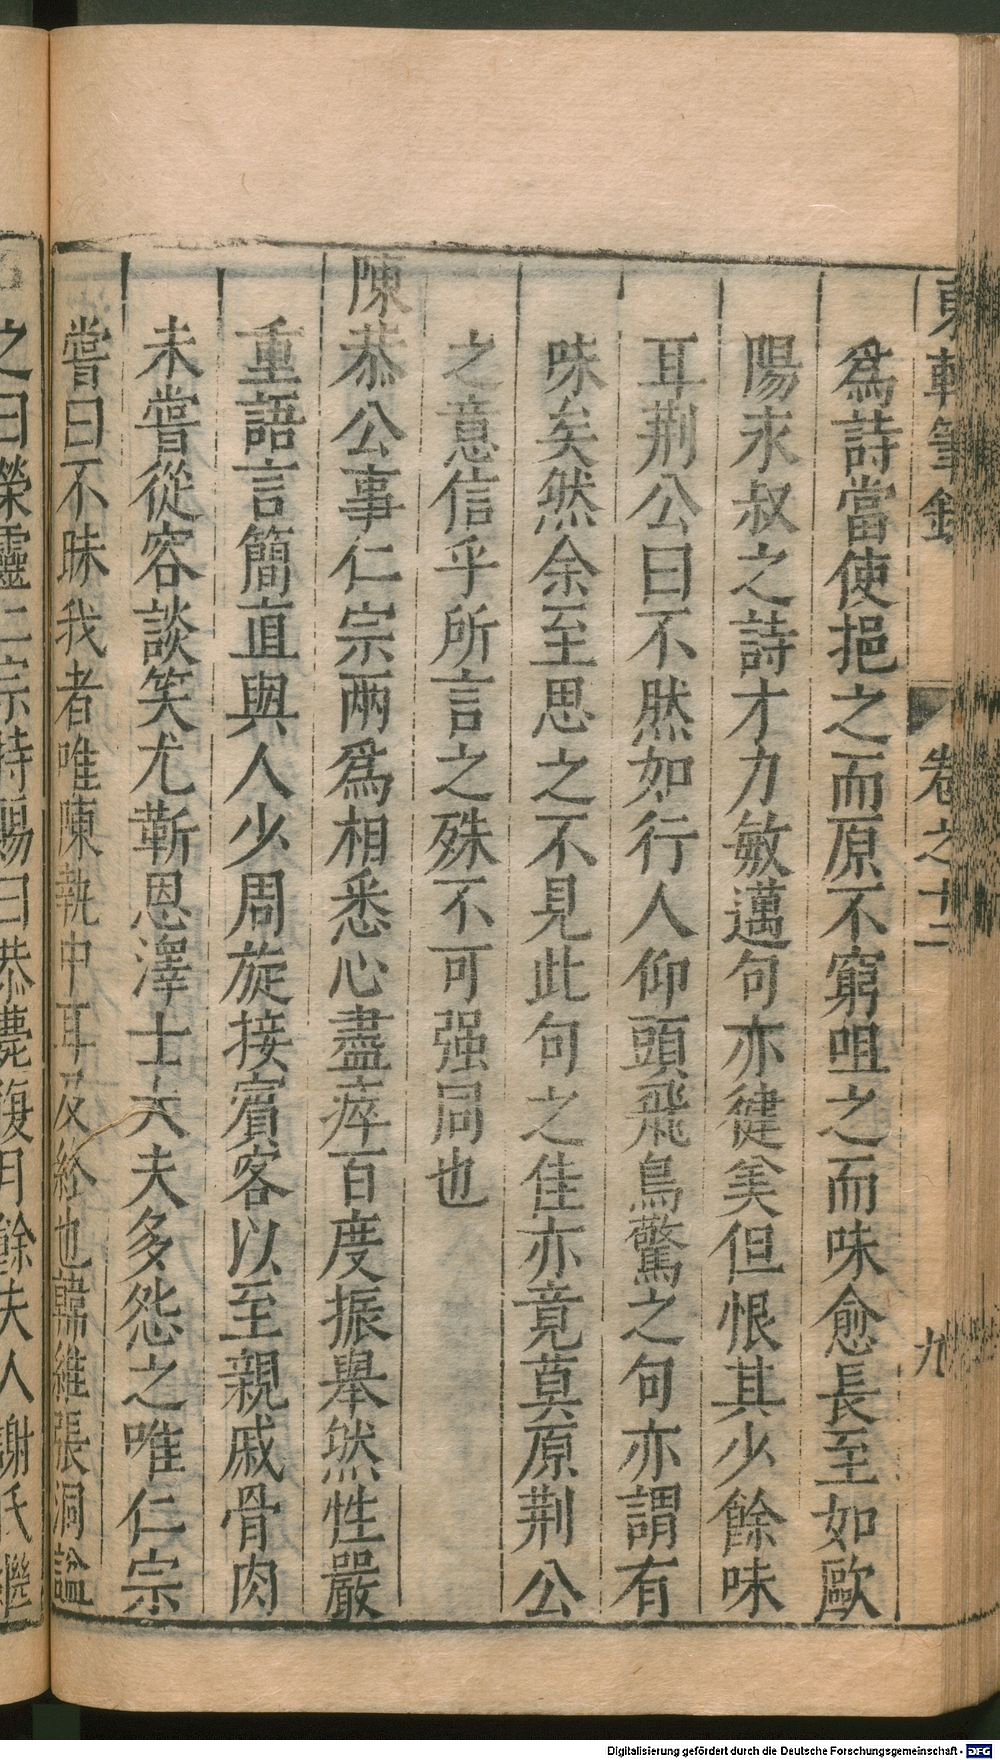 東軒筆錄 卷之十二 九
爲詩當使挹之而原不窮咀之而味愈長至如歐
陽永叔之詩才力敏邁句亦健美但恨其少餘味
耳荆公曰不然如行人仰頭飛鳥驚之句亦謂有
味矣然余至思之不見此句之佳亦竟莫原荆公
之意信乎所言之殊不可强同也
陳恭公事仁宗兩爲相悉心盡瘁百度振舉然性嚴
重語言簡直與人少周旋接賓客以至親戚骨肉
未嘗從容談笑尤靳恩澤士大夫多怨之唯仁宗
嘗曰不昧我者唯陳執中耳及終也韓維張洞謚
之曰榮靈仁宗特賜曰恭薨後月餘夫人謝氏繼
Digitalisierung gefördert durch die Deutsche Forschungsgemeinschaft - DFG